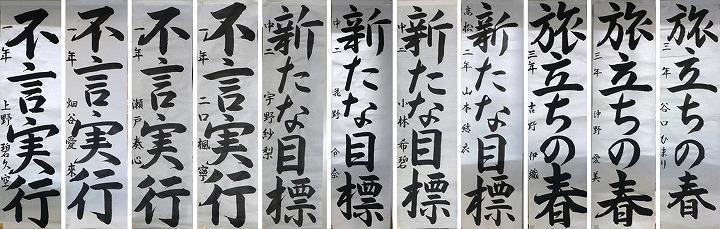 不言実行
一年 上野 碧久空
不言実行
一年 畑谷 愛來
不言実行
一年 瀬戸 奏心
不言実行
一年 二口 楓寧
新たな目標
中二 宇野 紗梨
新たな目標
中二 花野 令奈
新たな目標
中二 小林 希碧
新たな目標
高松 二年 山本 結衣
旅立ちの春
三年 吉野 伊織
旅立ちの春
三年 沖野 愛美
旅立ちの春
三年 谷口 ひまり